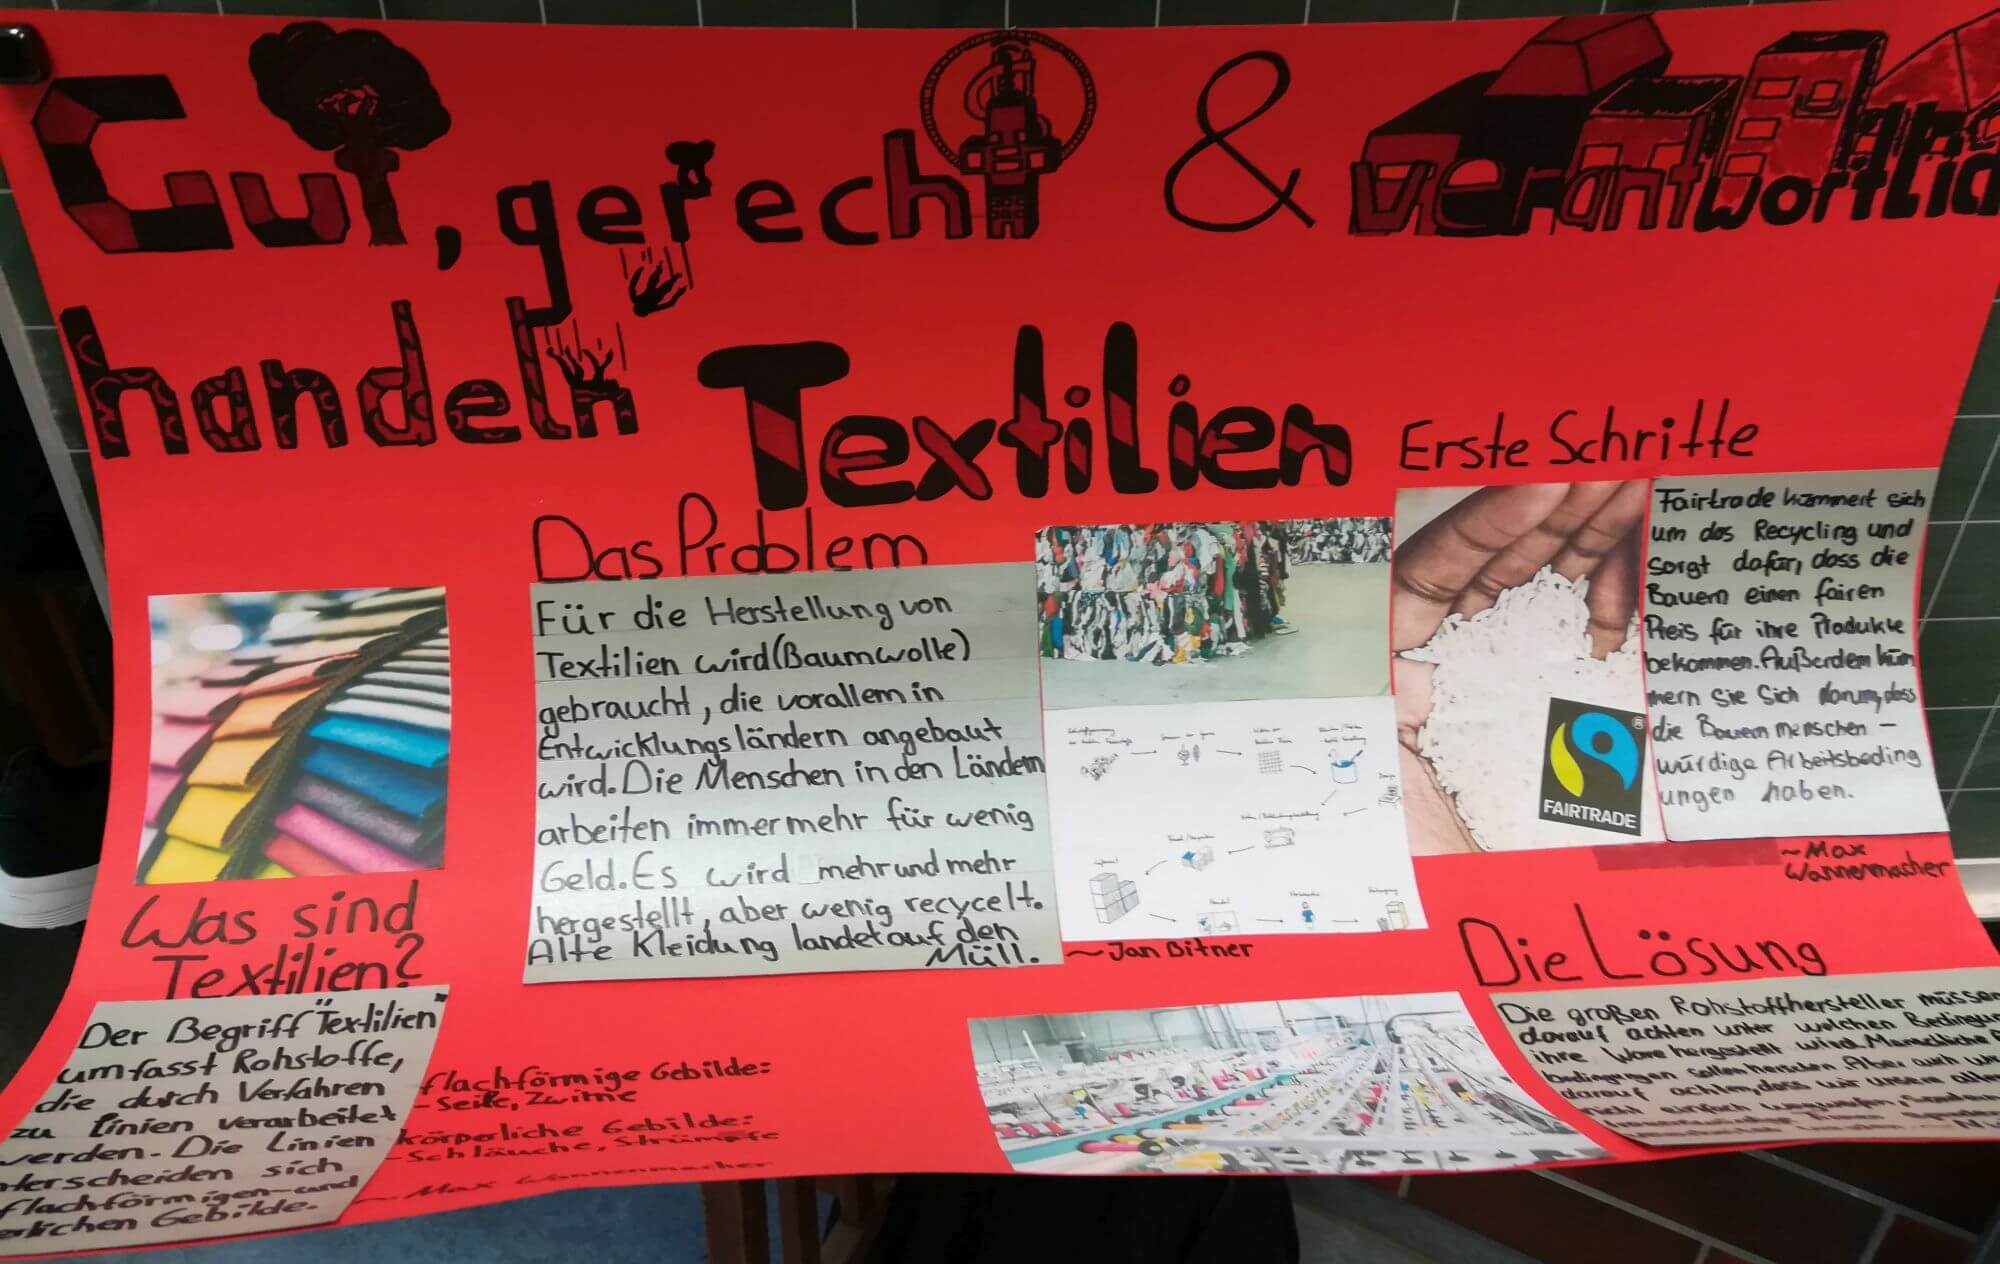 Gut, gerecht & verantwortlich
handeln
Textilien
Was sind
Textilien?
Der Begriff "Textilien"
umfasst Rohstoffe,
die durch Verfahren
zu Linien verarbeitet
werden. Die Linien
terscheiden sich
flachförmigen und
rlichen Gebilde.
flachförmige Gebilde:
- Seile, Zwirne
körperliche Gebilde:
- Schläuche, Strümpfe
~ Max Wannenmacher
Das Problem
Für die Herstellung von
Textilien wird (Baumwolle)
gebraucht, die vorallem in
Entwicklungsländern angebaut
wird. Die Menschen in den Ländern
arbeiten immer mehr für wenig
Geld. Es wird mehr und mehr
hergestellt, aber wenig recycelt.
Alte Kleidung landet auf den
Müll.
~Jan Bitner
Erste Schritte
Fairtrade kümmert sich
um das Recycling und
sorgt dafür, dass die
Bauern einen fairen
Preis für ihre Produkte
bekommen. Außerdem küm
mern Sie Sich darum, dass
die Bauern menschen-
würdige Arbeitsbeding
ungen haben.
FAIRTRADE
®
~Max
Wannenmacher
Die Lösung
Die großen Rohstoffhersteller müssen
darauf achten unter welchen Bedingun
ihre Ware hergestellt wird. Menschliche A
bedingungen sollen herschen. Aber auch wir
darauf achten, dass wir unsere alten
nicht einfach wegwerfen,